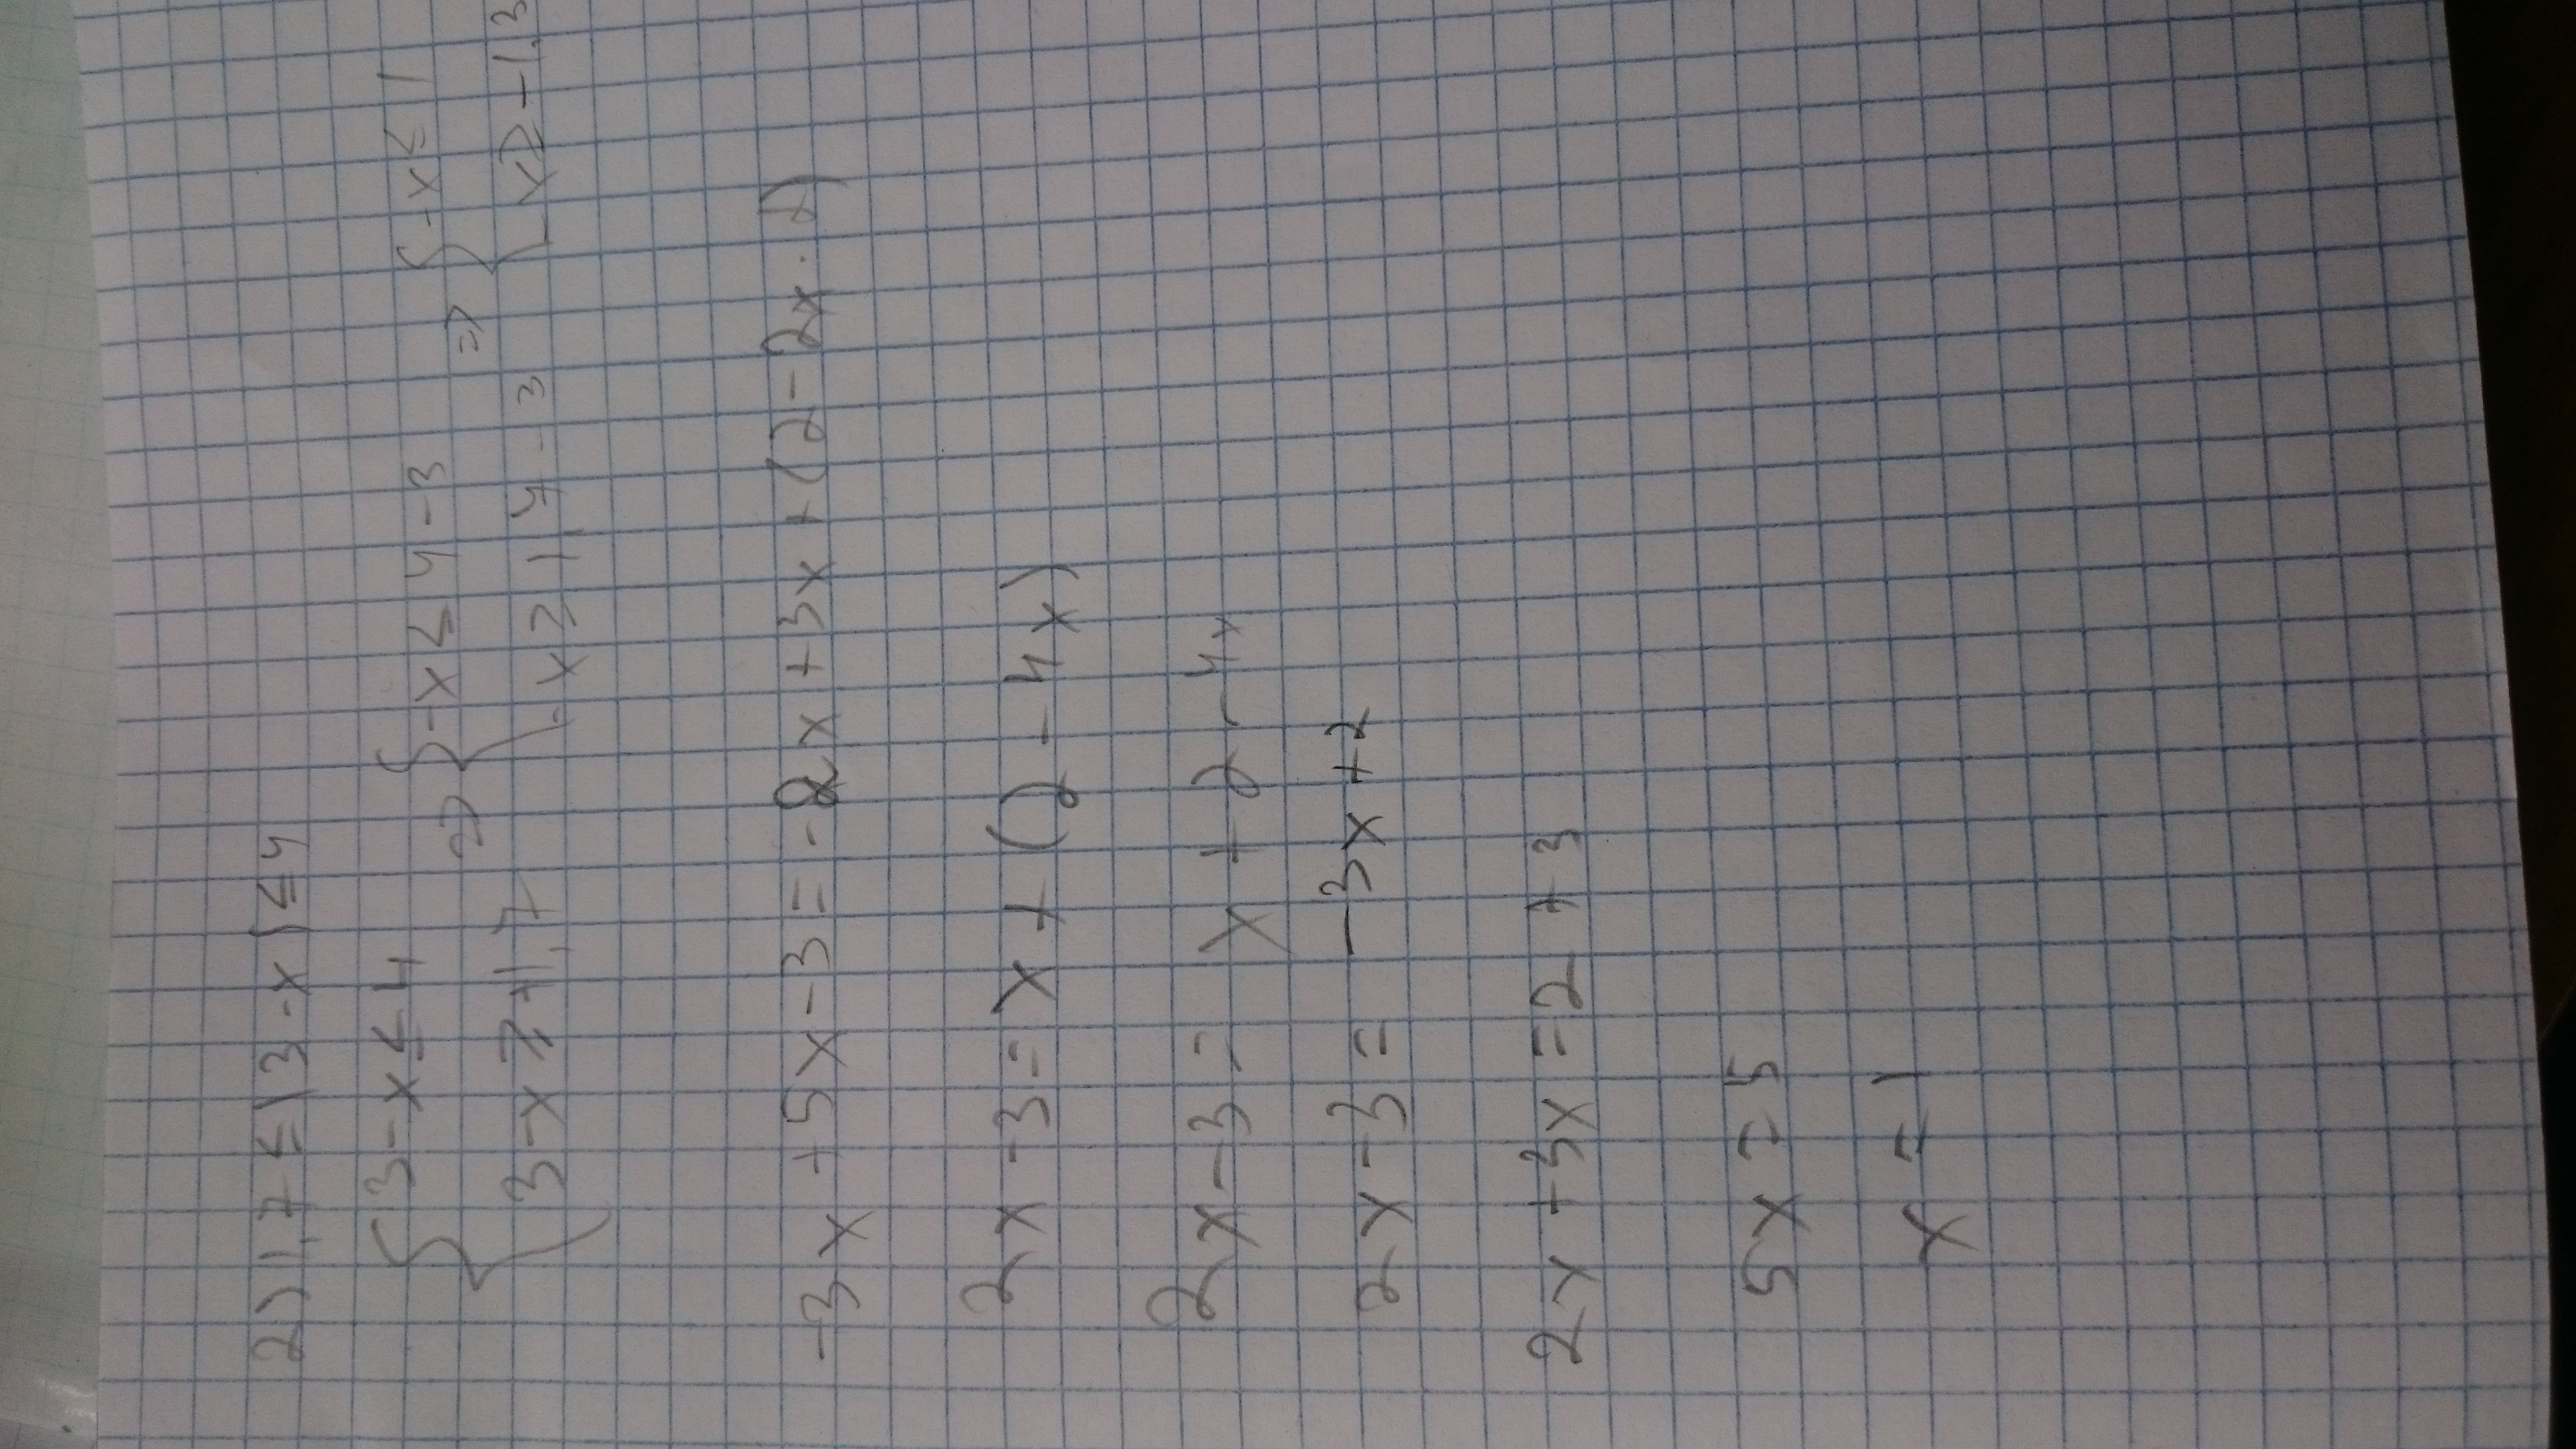 2) 1,7 ≤ |3-x| ≤ 4
{ 3-x ≤ 4 => { -x ≤ 4-3 => { -x ≤ 1
{ 3-x ≥ +1,7 { -x ≥ 1,7-3 { -x ≥ -1,3
-3x +5x-3 = -2x+3x+(2-2x·2)
2x-3 = x+(2-4x)
2x-3 = x+2-4x
2x-3 = -3x+2
2x+3x = 2+3
5x = 5
x = 1